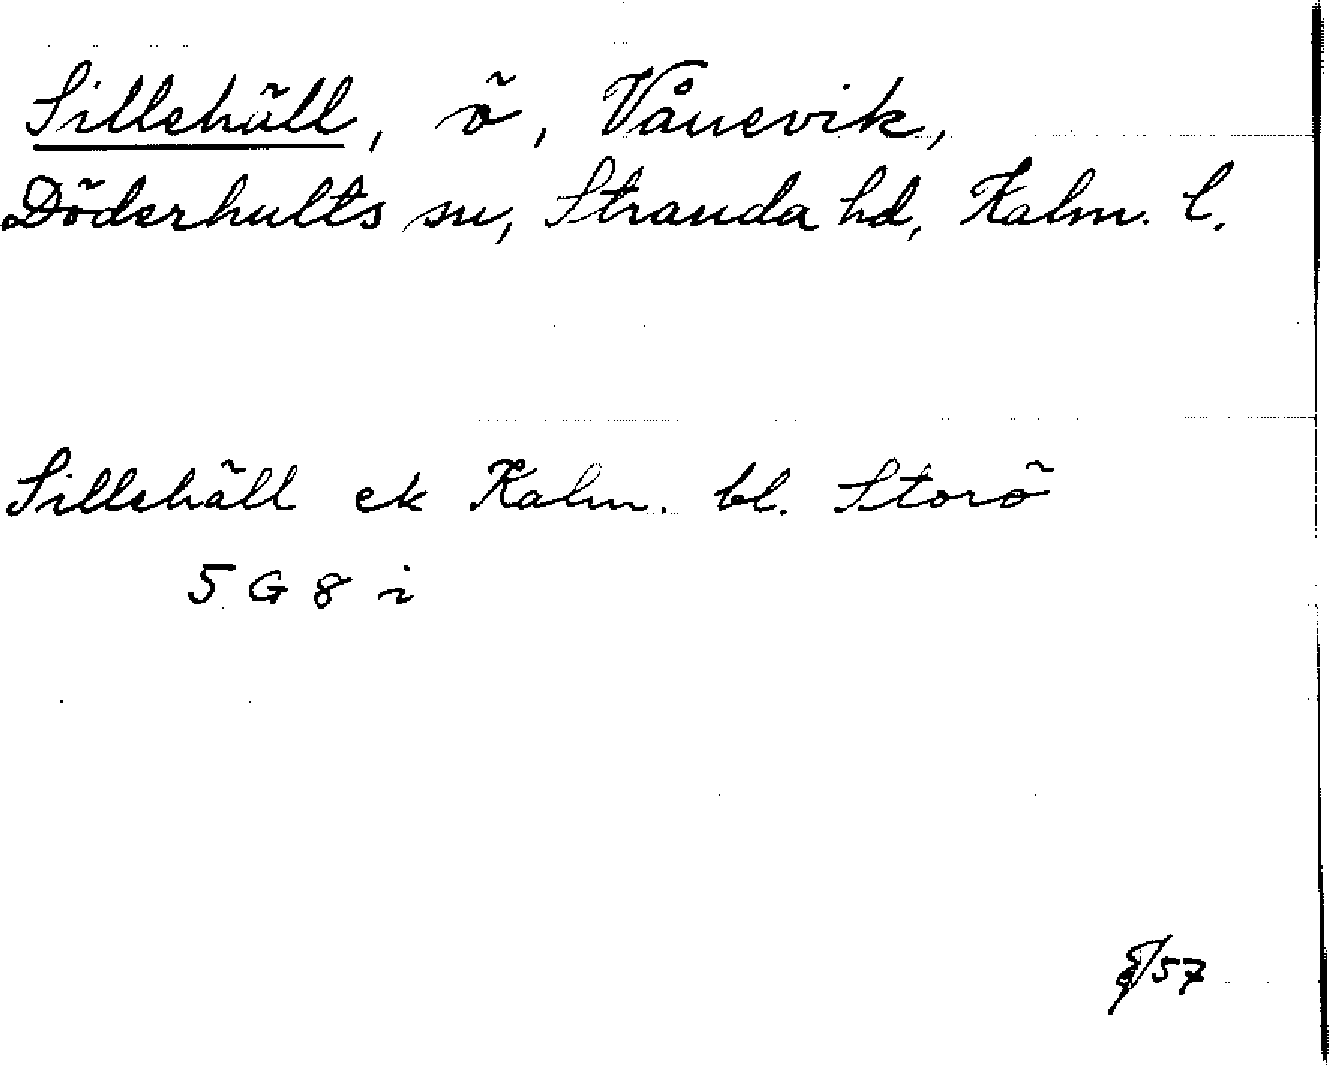 Sillehäll, ö, Vånevik,
Döderhults sn, Stranda hd, Kalm. l.
Sillehäll ek Kalm. bl. Storö
5 G 8 i
/57